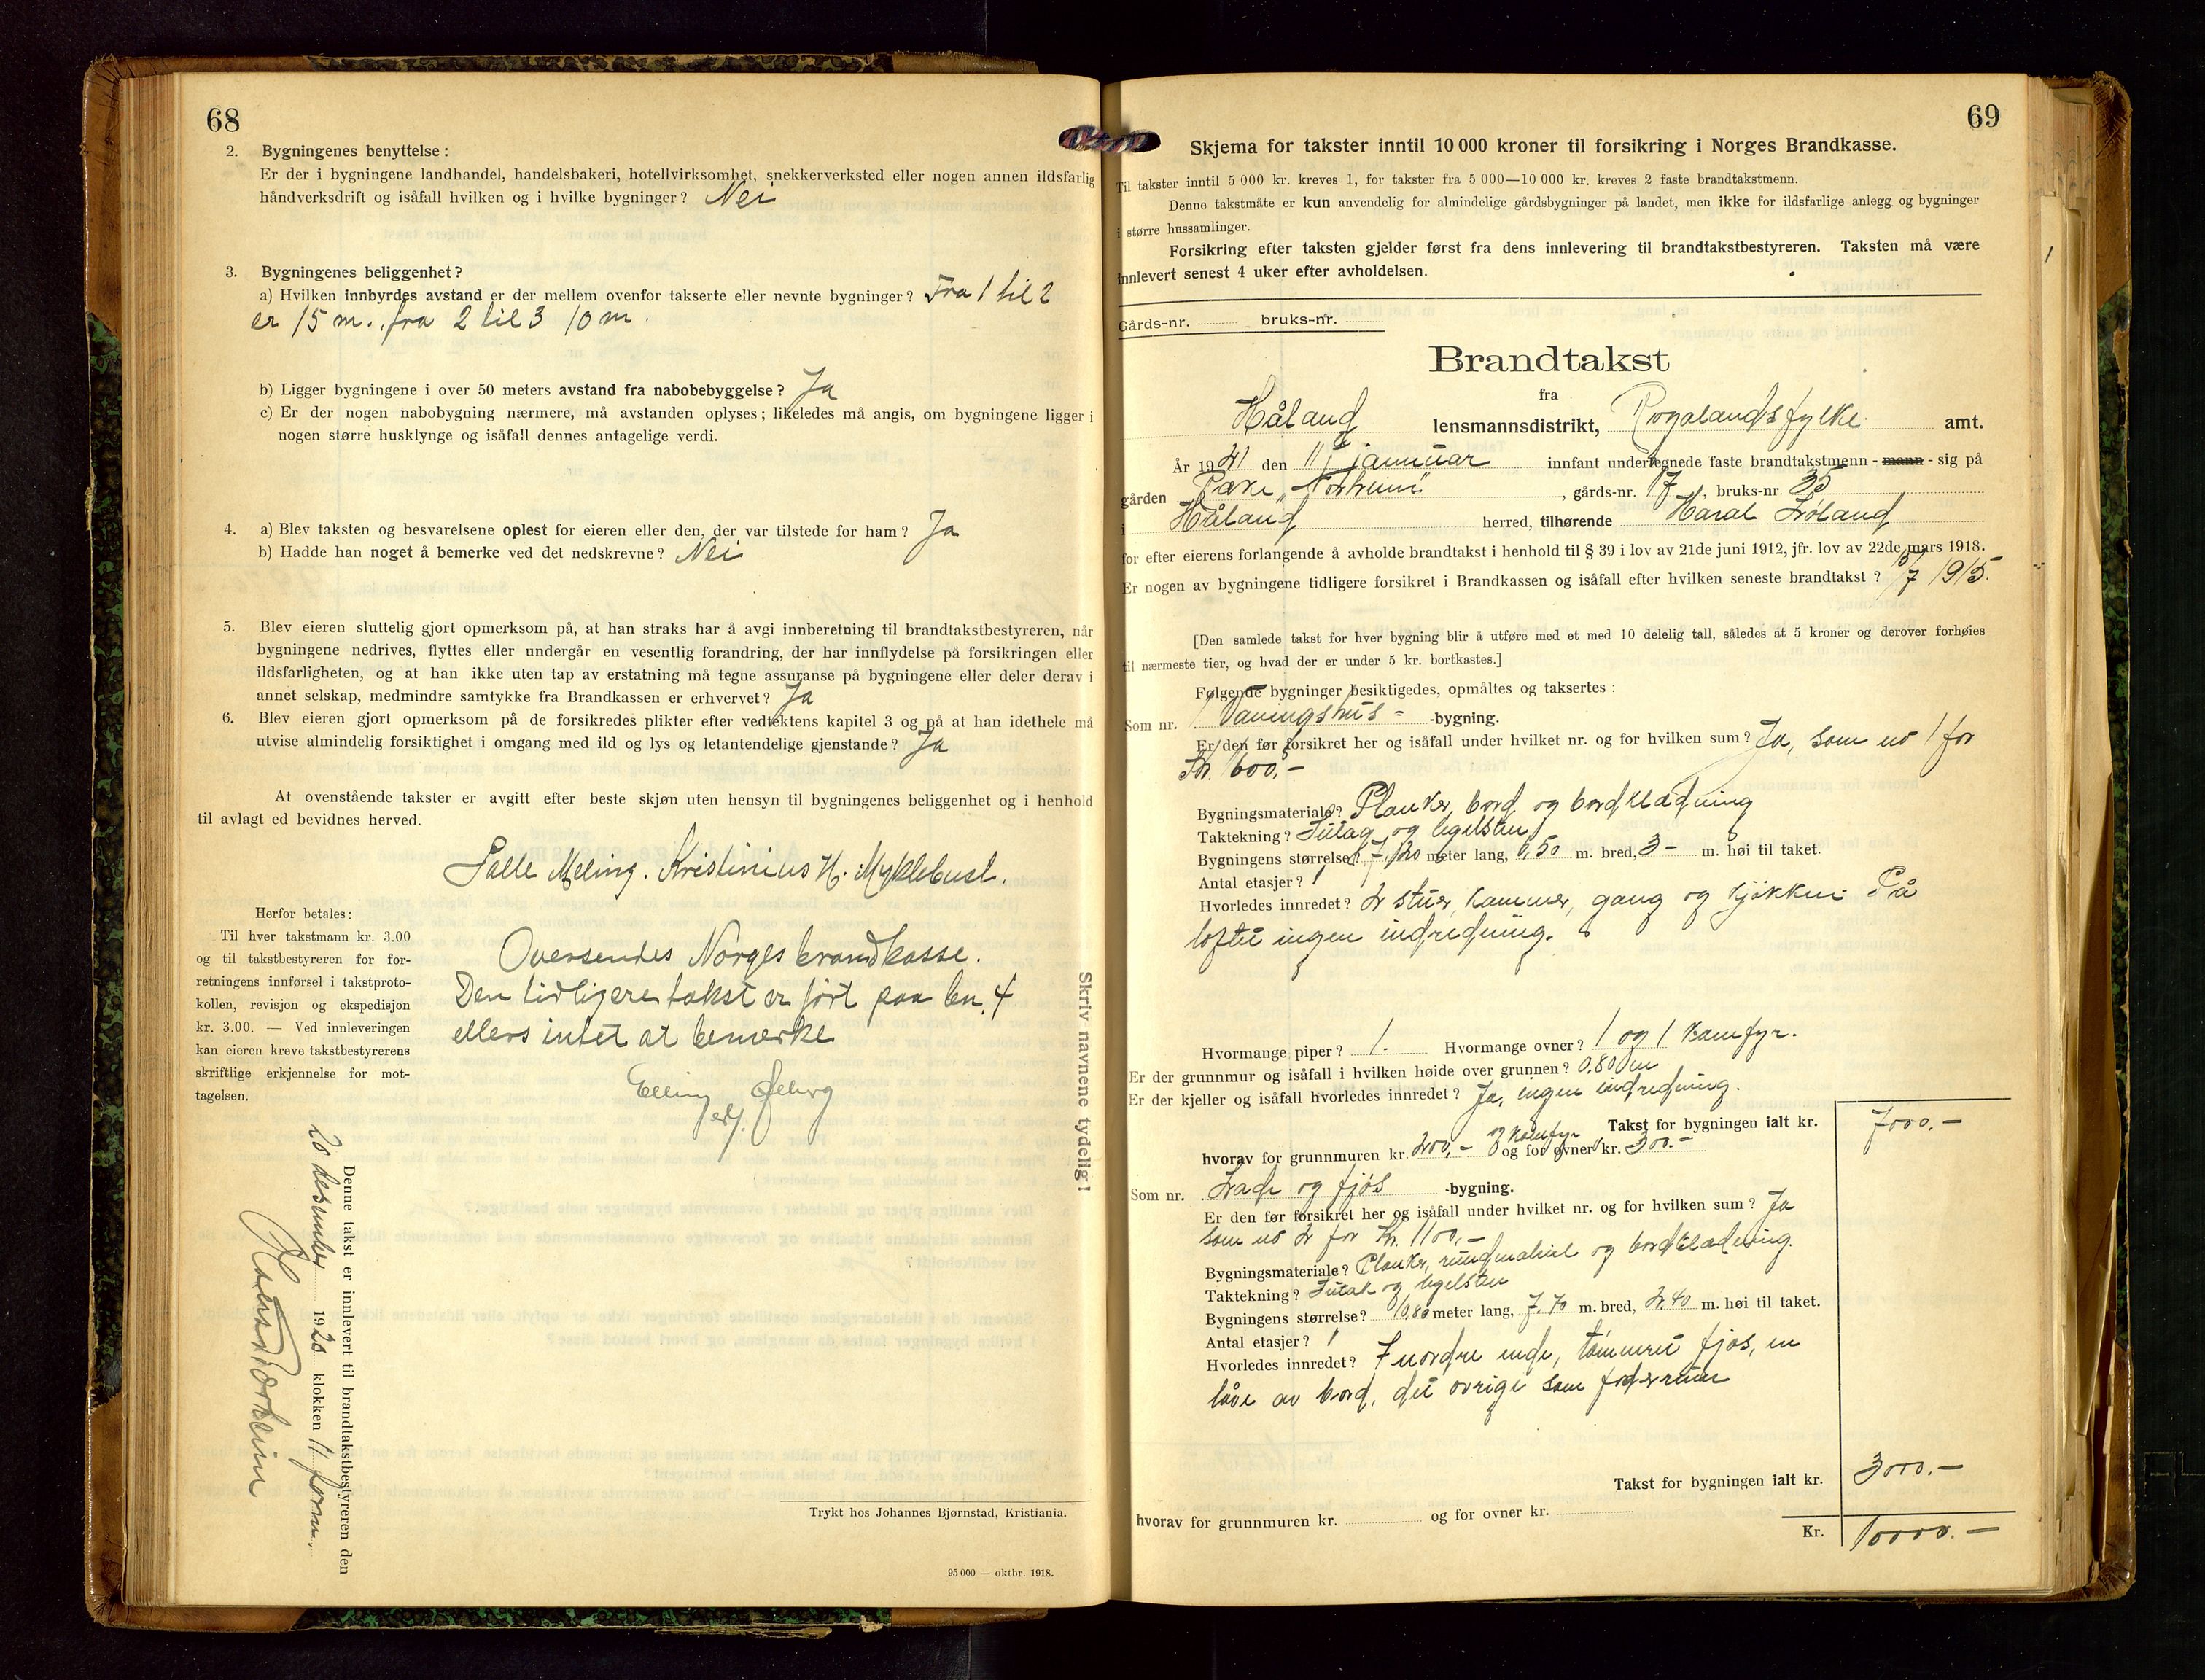 68
2. Bygningenes benyttelse :
Er der i bygningene landhandel, handelsbakeri, hotellvirksomhet, snekkerverksted eller nogen annen ildsfarlig
håndverksdrift og isåfall hvilken og i hvilke bygninger? Nei
3. Bygningenes beliggenhet?
a) Hvilken innbyrdes avstand er der mellem ovenfor takserte eller nevnte bygninger? Fra 1 til 2
er 15 m., fra 2 til 3 10 m.
b) Ligger bygningene i over 50 meters avstand fra nabobebyggelse? Ja
c) Er der nogen nabobygning nærmere, må avstanden oplyses; likeledes må angis, om bygningene ligger i
nogen større husklynge og isåfall dennes antagelige verdi.
4. a) Blev taksten og besvarelsene oplest for eieren eller den, der var tilstede for ham? Ja
b) Hadde han noget å bemerke ved det nedskrevne? Nei
5. Blev eieren sluttelig gjort opmerksom på, at han straks har å avgi innberetning til brandtakstbestyreren, når
bygningene nedrives, flyttes eller undergår en vesentlig forandring, der har innflydelse på forsikringen eller
ildsfarligheten, og at han ikke uten tap av erstatning må tegne assuranse på bygningene eller deler derav i
annet selskap, medmindre samtykke fra Brandkassen er erhvervet? Ja
6. Blev eieren gjort opmerksom på de forsikredes plikter efter vedtektens kapitel 3 og på at han idethele må
utvise almindelig forsiktighet i omgang med ild og lys og letantendelige gjenstande? Ja
At ovenstående takster er avgitt efter beste skjøn uten hensyn til bygningenes beliggenhet og i henhold
til avlagt ed bevidnes herved.
Salle Meling. Kristinius H. Myklebust.
Herfor betales:
Til hver takstmann kr. 3.00
og til takstbestyreren for for-
retningens innførsel i takstproto-
kollen, revisjon og ekspedisjon
kr. 3.00. — Ved innleveringen
kan eieren kreve takstbestyrerens
skriftlige erkjennelse for mot-
tagelsen.
Oversendes Norges brandkasse.
Den tidligere takst er ført paa bn. 4
ellers intet at bemerke
Elling
Skriv navnene tydelig!
Denne takst er innlevert til brandtakstbestyreren den
20 desember 1920 klokken 11 form.
Trykt hos Johannes Bjørnstad, Kristiania.
95 000 — oktbr. 1918.
69
Skjema for takster inntil 10 000 kroner til forsikring i Norges Brandkasse.
Til takster inntil 5 000 kr. kreves 1, for takster fra 5 000—10 000 kr. kreves 2 faste brandtakstmenn.
Denne takstmåte er kun anvendelig for almindelige gårdsbygninger på landet, men ikke for ildsfarlige anlegg og bygninger
i større hussamlinger.
Forsikring efter taksten gjelder først fra dens innlevering til brandtakstbestyreren. Taksten må være
innlevert senest 4 uker efter avholdelsen.
Gårds-nr. bruks-nr.
Brandtakst
fra
Håland lensmannsdistrikt, Rogalands fylke amt.
År 1921 den 11te januar innfant undertegnede faste brandtakstmenn - mann - sig på
gården "Norheim" , gårds-nr. 17, bruks-nr. 35
i Håland herred, tilhørende
for efter eierens forlangende å avholde brandtakst i henhold til § 39 i lov av 21de juni 1912, jfr. lov av 22de mars 1918.
Er nogen av bygningene tidligere forsikret i Brandkassen og isåfall efter hvilken seneste brandtakst? 10/7 1915.
[Den samlede takst for hver bygning blir å utføre med et med 10 delelig tall, således at 5 kroner og derover forhøies
til nærmeste tier, og hvad der er under 5 kr. bortkastes.]
Følgende bygninger besiktigedes, opmåltes og taksertes :
Som nr. 1 Vaningshus - -bygning.
Er den før forsikret her og isåfall under hvilket nr. og for hvilken sum? Ja, som no 1 for
Kr. 1600,-
Bygningsmateriale? Planker, bord og bordklædning
Taktekning? Sutag og teglsten
Bygningens størrelse? 17,20 meter lang, 6,50 m. bred, 3 - m. høi til taket.
Antal etasjer? 1
Hvorledes innredet? 2 stuer, kammer, gang og kjøkken. På
loftet ingen indredning.
Hvormange piper? 1. Hvormange ovner? 1 og 1 komfyr.
Er der grunnmur og isåfall i hvilken høide over grunnen? 0,80 m
Er der kjeller og isåfall hvorledes innredet? Ja, ingen indredning.
Takst for bygningen ialt kr. 7000.-
hvorav for grunnmuren kr. 200,- og for ovner og komfyr kr. 300.-
Som nr. Lade og fjøs -bygning.
Er den før forsikret her og isåfall under hvilket nr. og for hvilken sum? Ja
som no 2 for Kr. 1100,-
Bygningsmateriale? Planker, rundmateriel og bordklædning.
Taktekning? Sutak og teglsten
Bygningens størrelse? 10,80 meter lang, 7.70 m. bred, 2.40 m. høi til taket.
Antal etasjer? 1
Hvorledes innredet? I nordre ende, tømmret fjøs, en
låve av bord, det øvrige som foderrum
Takst for bygningen ialt kr. 3000.-
hvorav for grunnmuren kr. og for ovner kr.
Kr. 10000.-